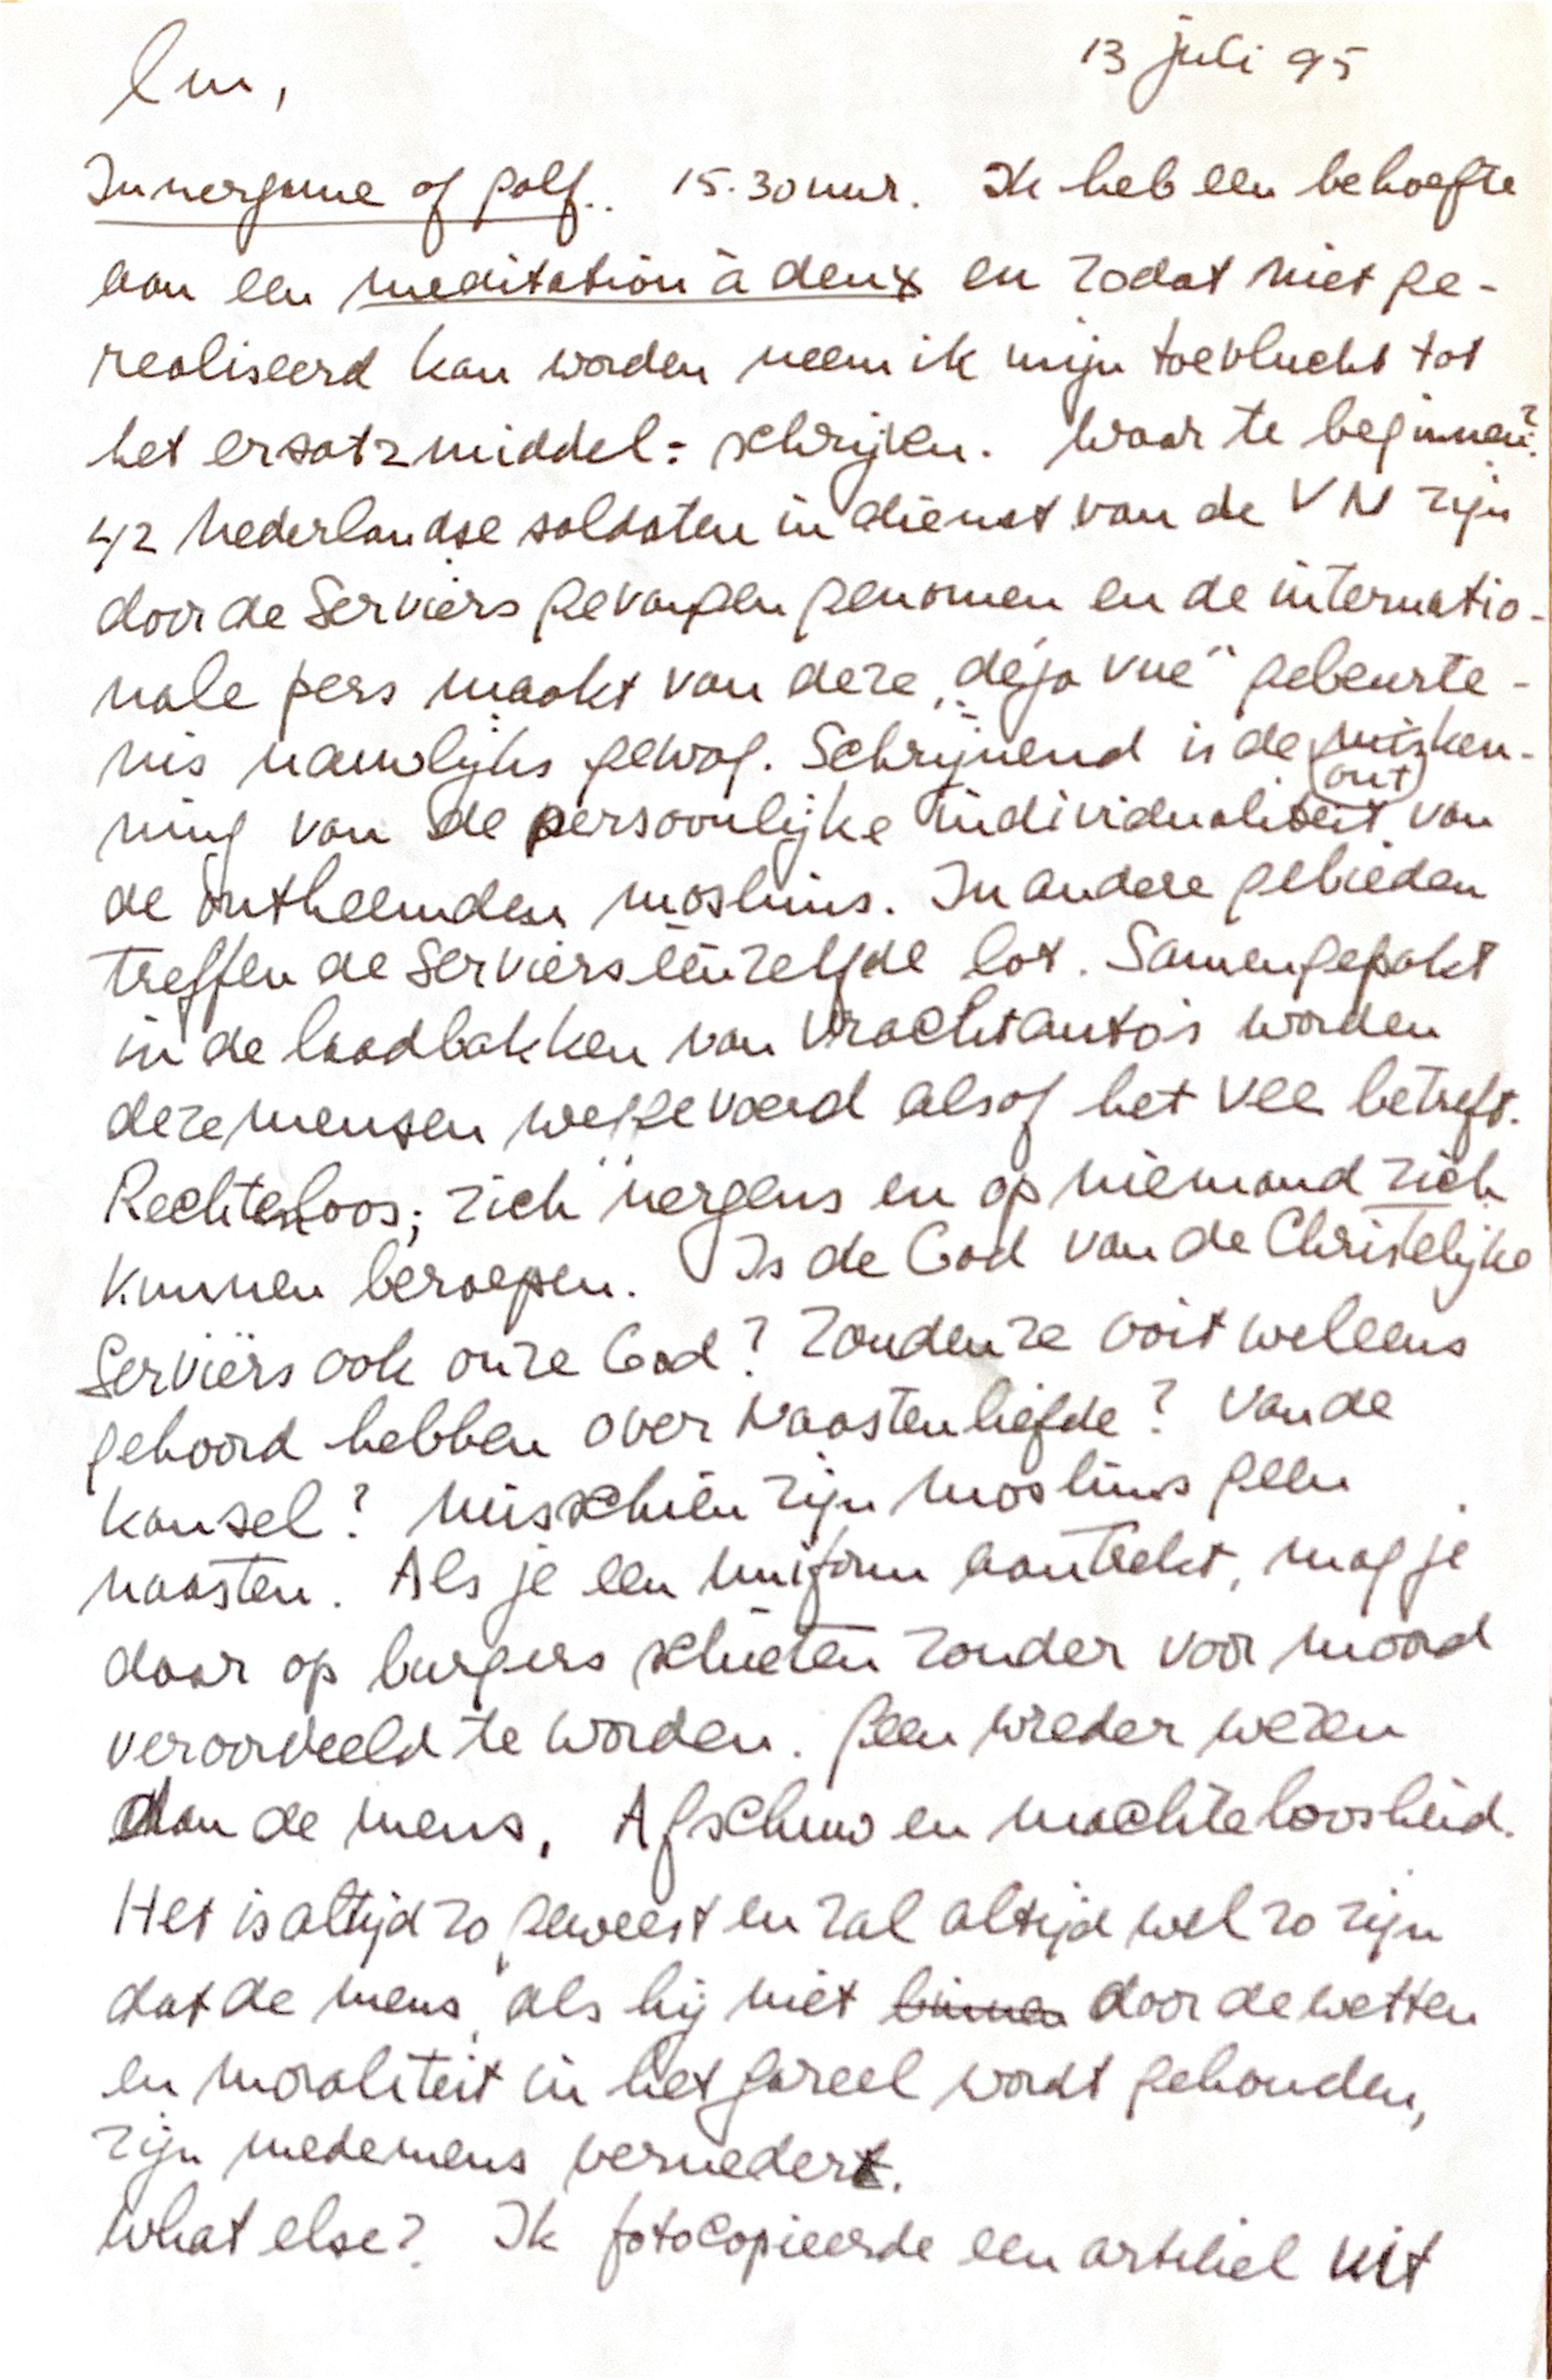 13 juli 95
Lm,
Innergame of golf.. 15.30 uur. Ik heb een behoefte
aan een meditation à deux en zodat niet ge-
realiseerd kan worden neem ik mijn toevlucht tot
het ersatzmiddel: schrijven. Waar te beginnen?
42 Nederlandse soldaten in dienst van de VN zijn
door de Serviërs gevangen genomen en de internatio-
nale pers maakt van deze „déja vue" gebeurte-
nis nauwlijks gewag. Schrijnend is de misken-
(ont)
ning van de persoonlijke individualiteit van
de ontheemden moslims. In andere gebieden
treffen de Serviërs éénzelfde lot. Samengepakt
in de laadbakken van vrachtauto's worden
deze mensen weggevoerd alsof het vee betreft.
Rechteloos; zich nergens en op niemand zich
kunnen beroepen. Is de God van de Christelijke
Serviërs ook onze God? Zouden ze ooit weleens
gehoord hebben over Naastenliefde? Van de
kansel? Misschien zijn moslims geen
naasten. Als je een uniform aantrekt, mag je
daar op burgers schieten zonder voor moord
veroordeeld te worden. Geen wreder wezen
dan de mens. Afschuw en machteloosheid.
Het is altijd zo geweest en zal altijd wel zo zijn
dat de mens, als hij niet binnen door de wetten
en moraliteit in het gareel wordt gehouden,
zijn medemens vernedert.
What else? Ik fotocopieerde een artikel uit